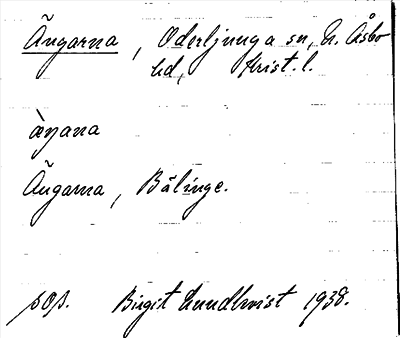 Ängarna, Oderljunga sn, N. Åsbo
hd, Krist. l.
àŋana
Ängarna, Bälinge.
pop. Birgit Lundkvist 1938.